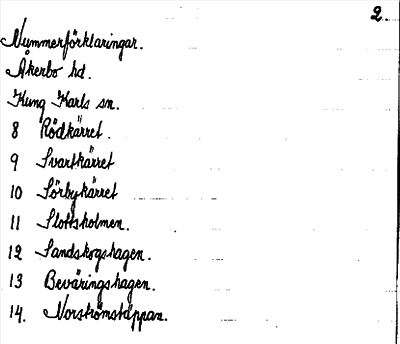 2.
Nummerförklaringar.
Åkerbo hd.
Kung Karls sn.
8 Rödkärret.
9 Svartkärret
10 Sörbykärret
11 Slottsholmen.
12 Sandskogshagen.
13 Beväringshagen.
14. Norströmstäppan.